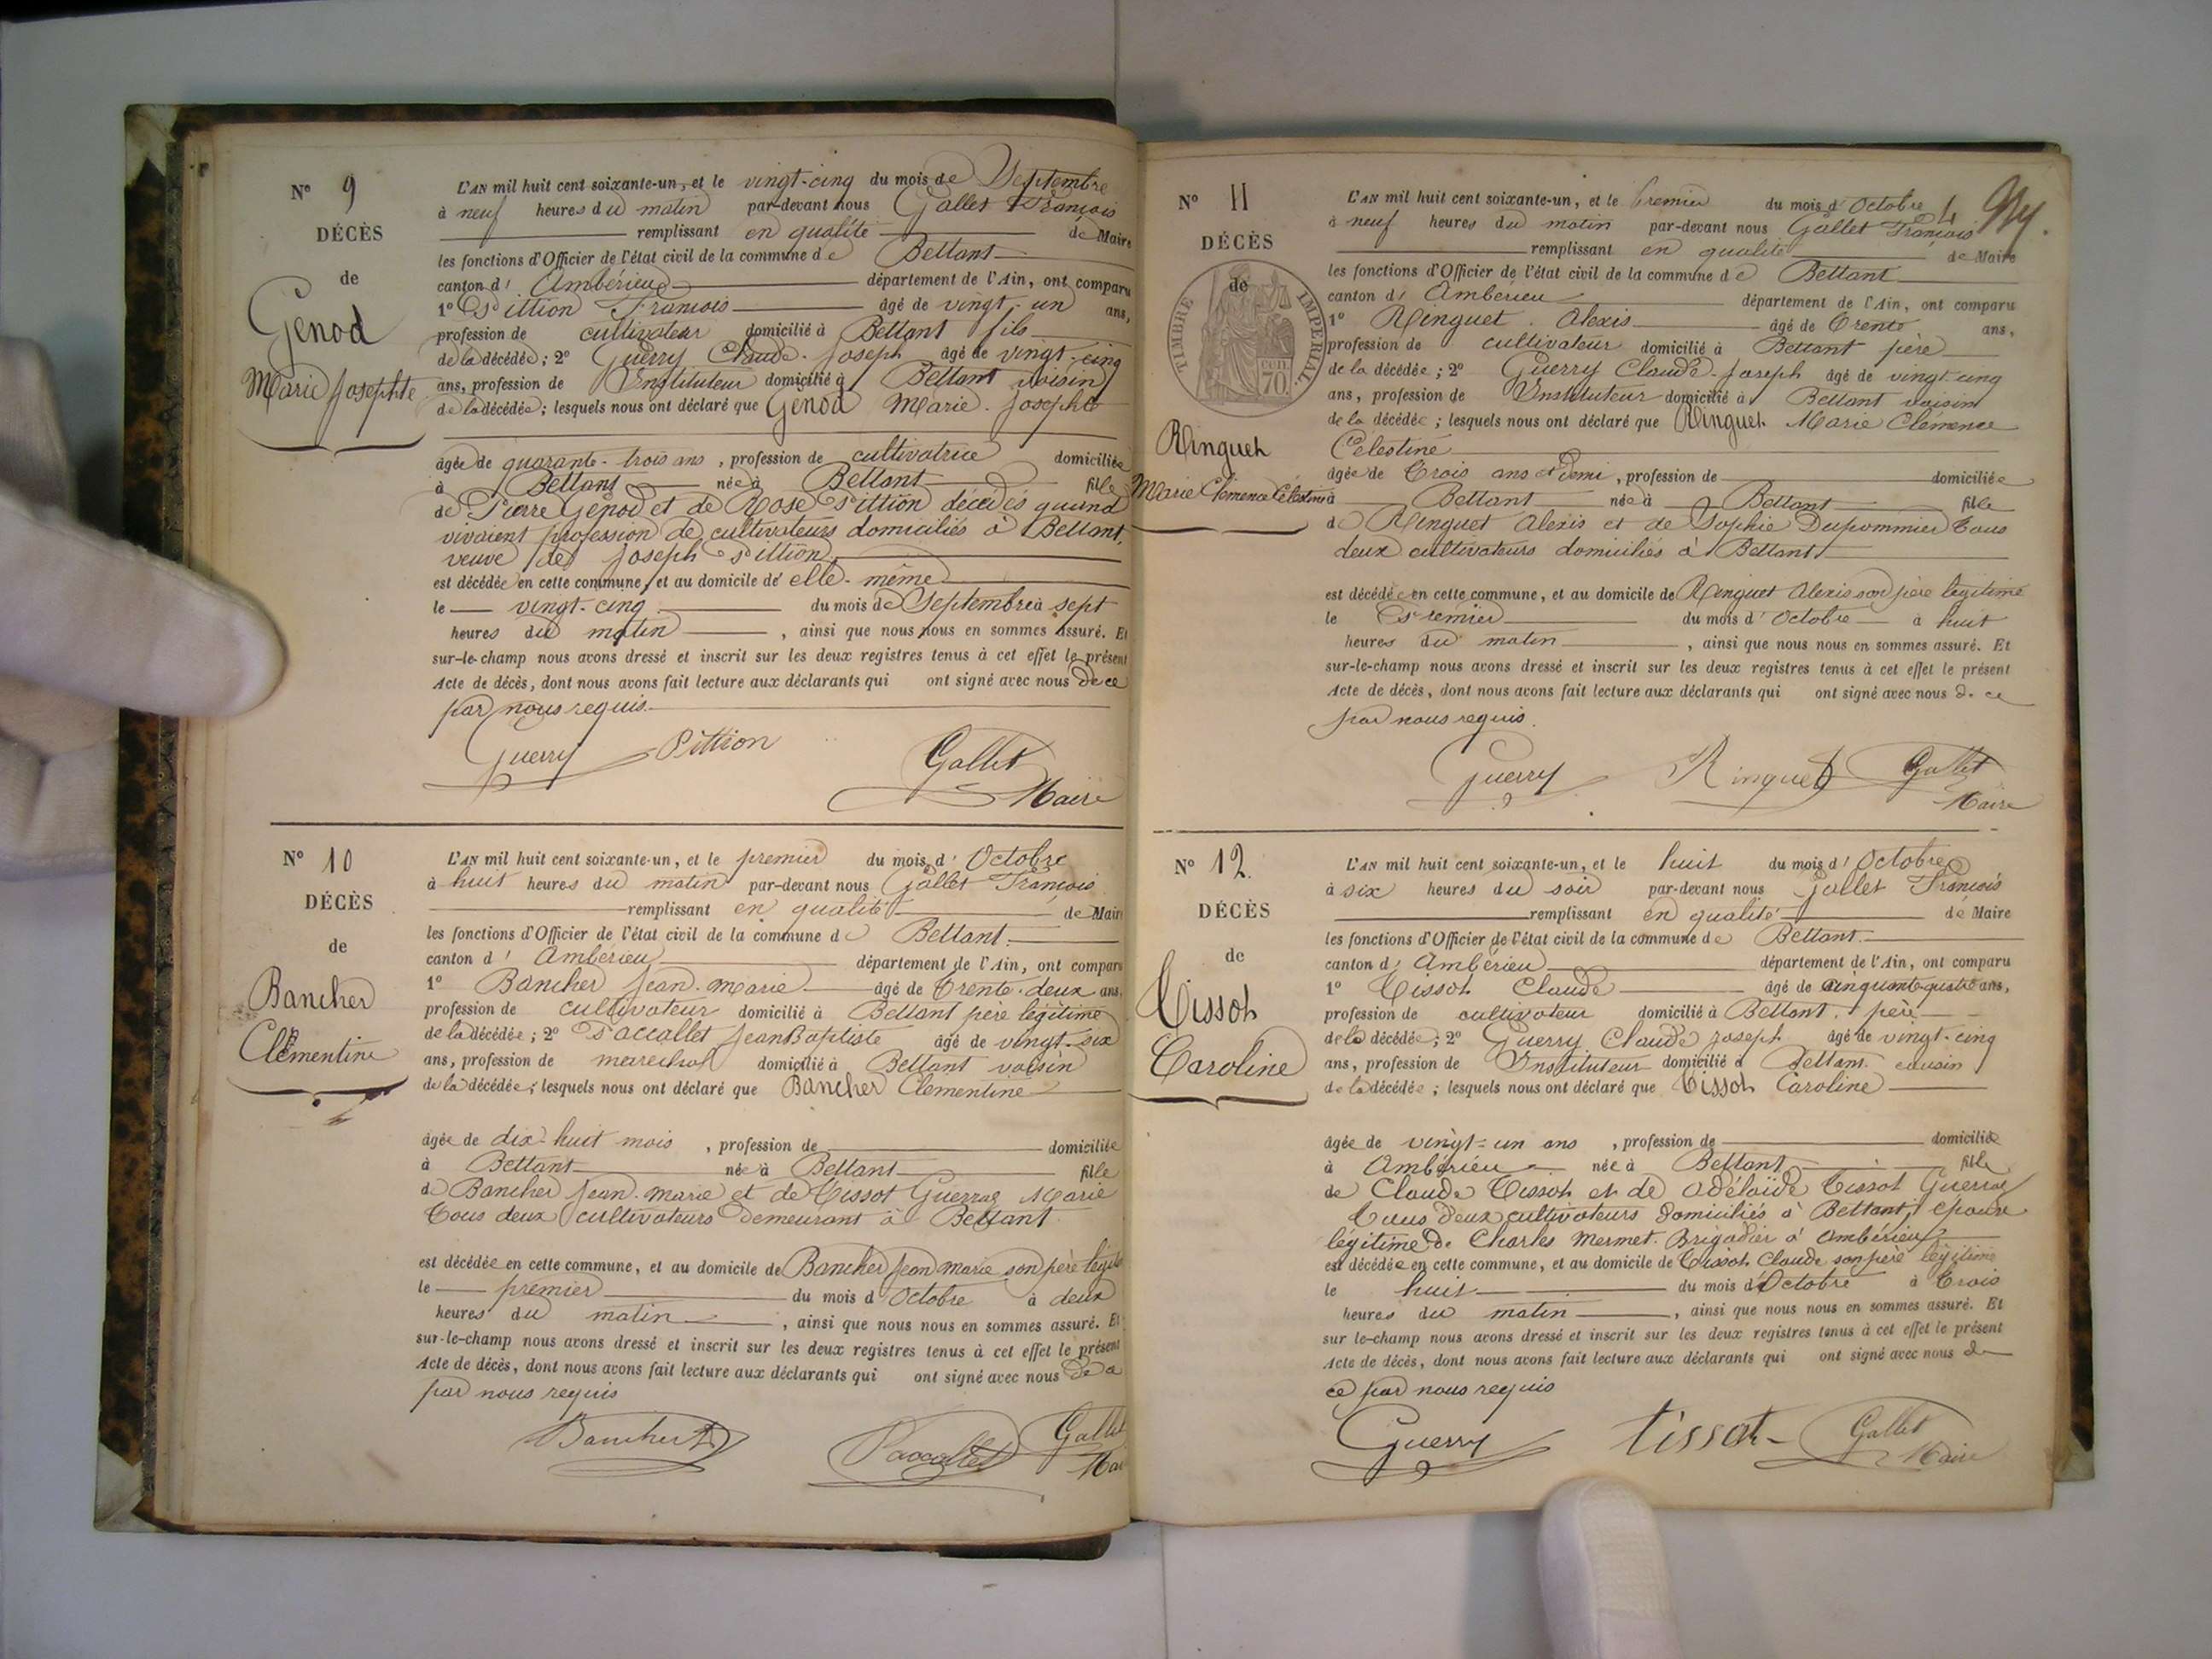 N° 9
DÉCÈS
de
Genod
Marie Josephte
L'AN mil huit cent soixante-un, et le vingt-cinq du mois de Septembre
à neuf heures du matin par-devant nous Gallet François
remplissant en qualité de Maire
les fonctions d'Officier de l'état civil de la commune de Bettant
canton d' Ambérieu département de l'Ain, ont comparu
1° Pittion François âgé de vingt-un ans,
profession de cultivateur domicilié à Bettant fils
de la décédée; 2° Guerry Claude-Joseph âgé de vingt-cinq
ans, profession de Instituteur domicilié à Bettant voisin
de la décédée; lesquels nous ont déclaré que Genod Marie-Josephte
agée de quarante-trois ans, profession de cultivatrice domiciliée
à Bettant née à Bettant fille
de Pierre Genod et de Rose Pittion décédés quand
vivaient profession de cultivateurs domiciliés à Bettant,
veuve de Joseph Pittion,
est décédée en cette commune, et au domicile de elle-même
le vingt-cinq du mois de Septembre à sept
heures du matin, ainsi que nous nous en sommes assuré. Et
sur-le-champ nous avons dressé et inscrit sur les deux registres tenus à cet effet le présent
Acte de décès, dont nous avons fait lecture aux déclarants qui ont signé avec nous de ce
par nous requis.
Guerry Pittion Gallet
Maire
N° 10
DÉCÈS
de
Bancher
Clémentine
L'AN mil huit cent soixante-un, et le premier du mois d' Octobre
à huit heures du matin par-devant nous Gallet François
remplissant en qualité de Maire
les fonctions d'Officier de l'état civil de la commune de Bettant
canton d' Ambérieu département de l'Ain, ont comparu
1° Bancher Jean-marie âgé de Trente-deux ans,
profession de cultivateur domicilié à Bettant père légitime
de la décédée; 2° Paccallet Jean Baptiste âgé de vingt-six
ans, profession de marechal domicilié à Bettant voisin
de la décédée; lesquels nous ont déclaré que Bancher Clémentine
âgée de dix-huit mois, profession de domiciliée
à Bettant née à Bettant fille
de Bancher Jean-marie et de Tissot Guerraz Marie
Tous deux cultivateurs demeurant à Bettant
est décédée en cette commune, et au domicile de Bancher Jean marie son père
le premier du mois d Octobre à deux
heures du matin, ainsi que nous nous en sommes assuré. Et
sur-le-champ nous avons dressé et inscrit sur les deux registres tenus à cet effet le présent
Acte de décès, dont nous avons fait lecture aux déclarants qui ont signé avec nous de ce
par nous requis
Bancher Paccallet Gallet
N° 11
DÉCÈS
de
TIMBRE IMPERIAL.
70.
Ringuet
Marie Clémence Célestine
L'AN mil huit cent soixante-un, et le Premier du mois d' Octobre
à neuf heures du matin par-devant nous Gallet François
remplissant en qualité de Maire
les fonctions d'Officier de l'état civil de la commune de Bettant
canton d' Ambérieu département de l'Ain, ont comparu
1° Ringuet Alexis âgé de Trente ans,
profession de cultivateur domicilié à Bettant père
de la décédée; 2° Guerry Claude-Joseph âgé de vingt-cinq
ans, profession de Instituteur domicilié à Bettant voisin
de la décédée; lesquels nous ont déclaré que Ringuet Marie Clémence
Celestine
âgée de Trois ans et Demi, profession de domiciliée
à Bettant née à Bettant fille
de Ringuet Alexis et de Sophie Dupommier Tous
deux cultivateurs domiciliés à Bettant
est décédée en cette commune, et au domicile de Ringuet Alexis son père légitime
le Premier du mois d' Octobre à huit
heures du matin, ainsi que nous nous en sommes assuré. Et
sur-le-champ nous avons dressé et inscrit sur les deux registres tenus à cet effet le présent
Acte de décès, dont nous avons fait lecture aux déclarants qui ont signé avec nous de ce
par nous requis.
Guerry Ringuet Gallet
Maire
N° 12.
DÉCÈS
de
Tissot
Caroline
L'AN mil huit cent soixante-un, et le huit du mois d' Octobre
à six heures du soir par-devant nous Gallet François
remplissant en qualité de Maire
les fonctions d'Officier de l'état civil de la commune de Bettant
canton d' Ambérieu département de l'Ain, ont comparu
1° Tissot Claude âgé de cinquante-quatre ans,
profession de cultivateur domicilié à Bettant, père
de la décédée; 2° Guerry Claude Joseph âgé de vingt-cinq
ans, profession de Instituteur domicilié à Bettant cousin
de la décédée; lesquels nous ont déclaré que Tissot Caroline
âgée de vingt-un ans, profession de domiciliée
à Ambérieu née à Bettant fille
de Claude Tissot et de Adélaïde Tissot Guerraz
Tous deux cultivateurs domiciliés à Bettant, épouse
légitime de Charles Mermet Brigadier à Ambérieu
est décédée en cette commune, et au domicile de Tissot Claude son père légitime
le huit du mois d'Octobre à Trois
heures du matin, ainsi que nous nous en sommes assuré. Et
sur le-champ nous avons dressé et inscrit sur les deux registres tenus à cet effet le présent
Acte de décès, dont nous avons fait lecture aux déclarants qui ont signé avec nous de
ce par nous requis
Guerry tissot Gallet
Maire